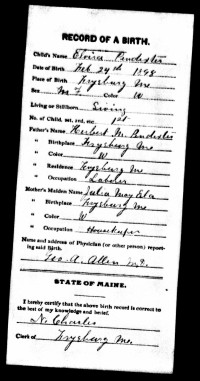 RECORD OF A BIRTH.
Child's Name Elvira Pendexter
Date of Birth Feb 24th 1898
Place of Birth Fryeburg Me
Sex F Color W
Living or Stillborn Living
No. of Child, 1st, 2nd, etc. 1st
Father's Name Herbert M. Pendexter
" Birthplace Fryeburg Me
" Color W
" Residence Fryeburg Me
" Occupation Laborer
Mother's Maiden Name Julia May
" Birthplace Fryeburg Me
" Color W
" Occupation Housekeeper
Name and address of Physician (or other person) report-
ing said Birth.
Geo. A. Allen M.D.
STATE OF MAINE.
I hereby certify that the above birth record is correct to
the best of my knowledge and belief.
N. Charles
Clerk of Fryeburg Me.